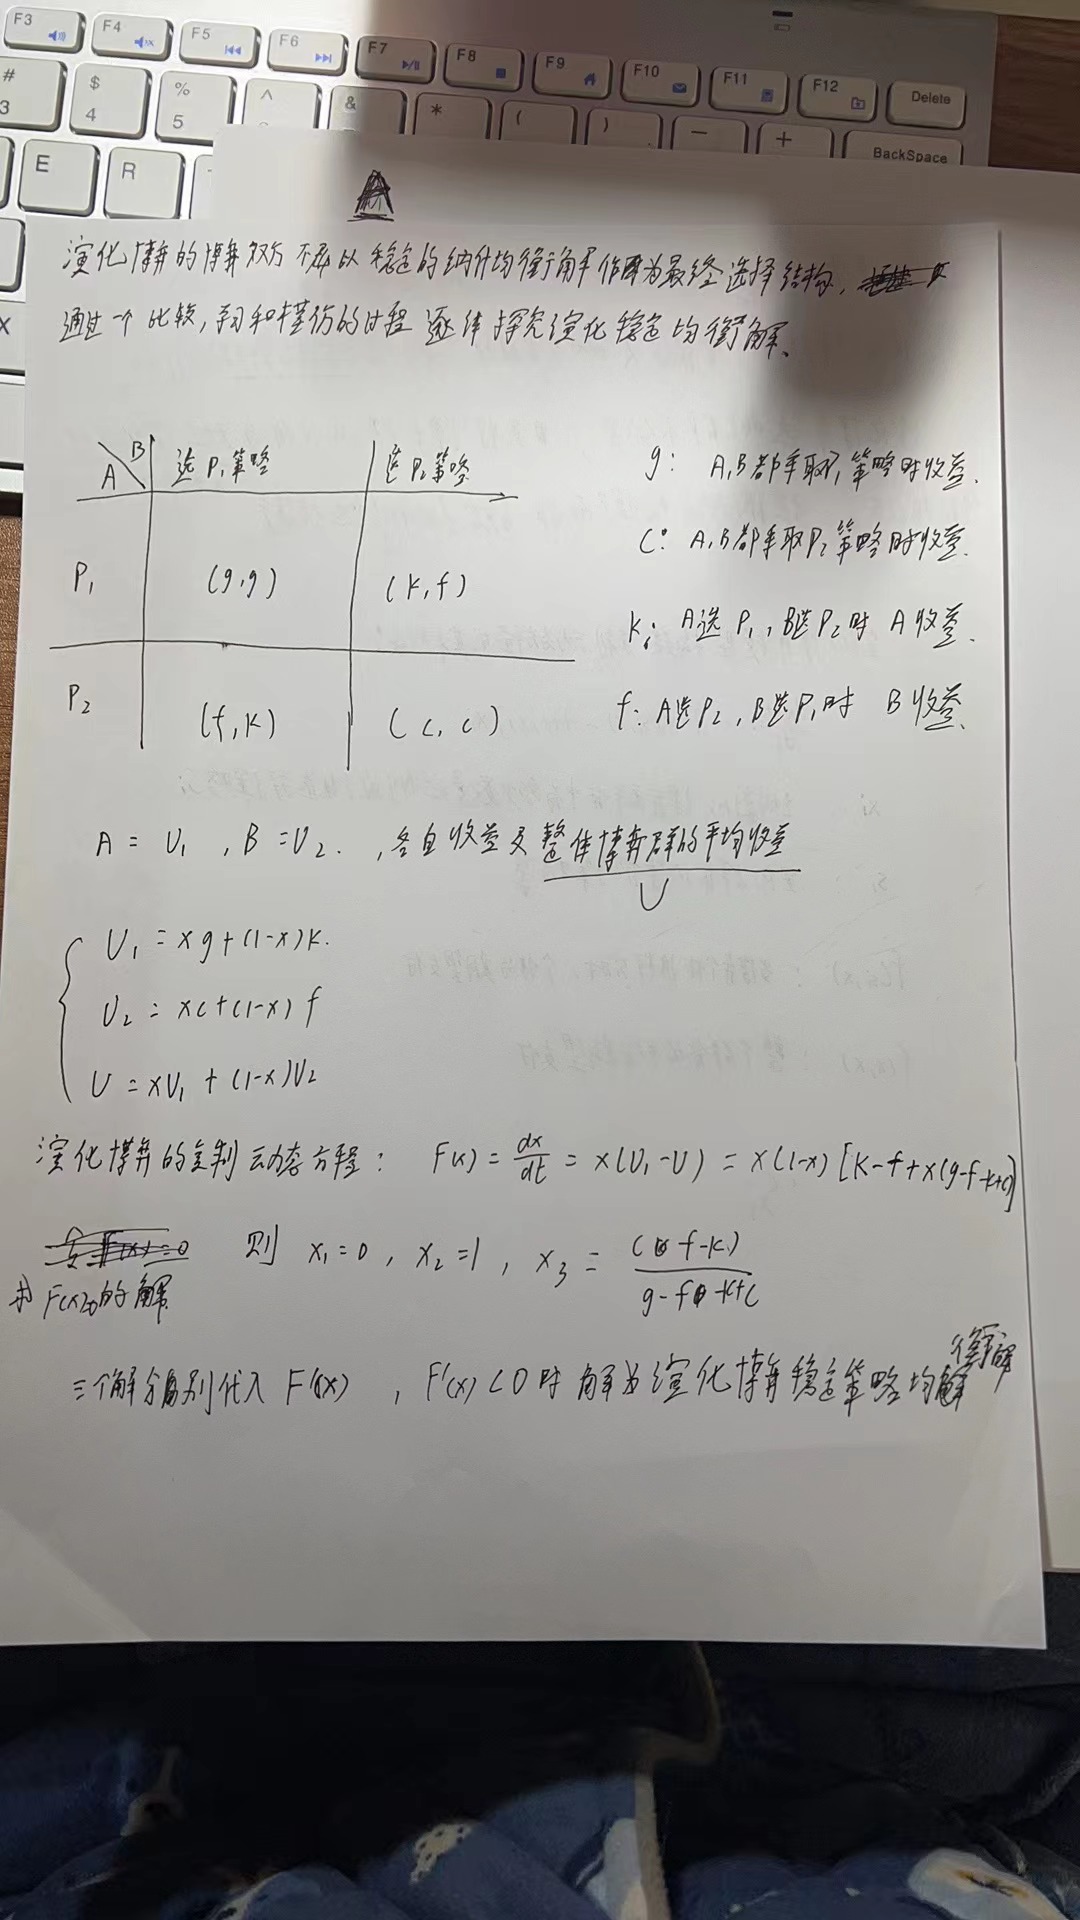 F3 F4 F5 F6 F7 F8 F9 F10 F11 F12 Delete
# 3 $ 4 % 5 ^ & * ( ) - + BackSpace
E R
X
A
演化博弈的博弈双方不再以稳定的纳什均衡解作为最终选择结构,
通过一个比较,学习和模仿的过程逐律探究演化稳定均衡解、
A B 选P1策略 选P2策略
P1 (g,g) (k,f)
P2 (f,k) (c,c)
g: A,B都采取P1策略时收益.
C: A,B都采取P2策略时收益.
k: A选P1,B选P2时 A收益.
f: A选P2,B选P1时 B收益.
A = U1 , B = U2. ,各自收益及整体博弈群的平均收益
U
U1 = xg+(1-x)k.
U2 = xc+(1-x)f
U = xU1+(1-x)U2
演化博弈的复制动态方程: F(x) = dx/dt = x(U1-U) = x(1-x)[k-f+x(g-f-k+c)]
则 x1=0 , x2=1 , x3 = (f-k)/g-f-k+c
求F(x)=0的解
三个解分别代入F'(x) , F'(x)<0时解为演化博弈稳定策略均衡解